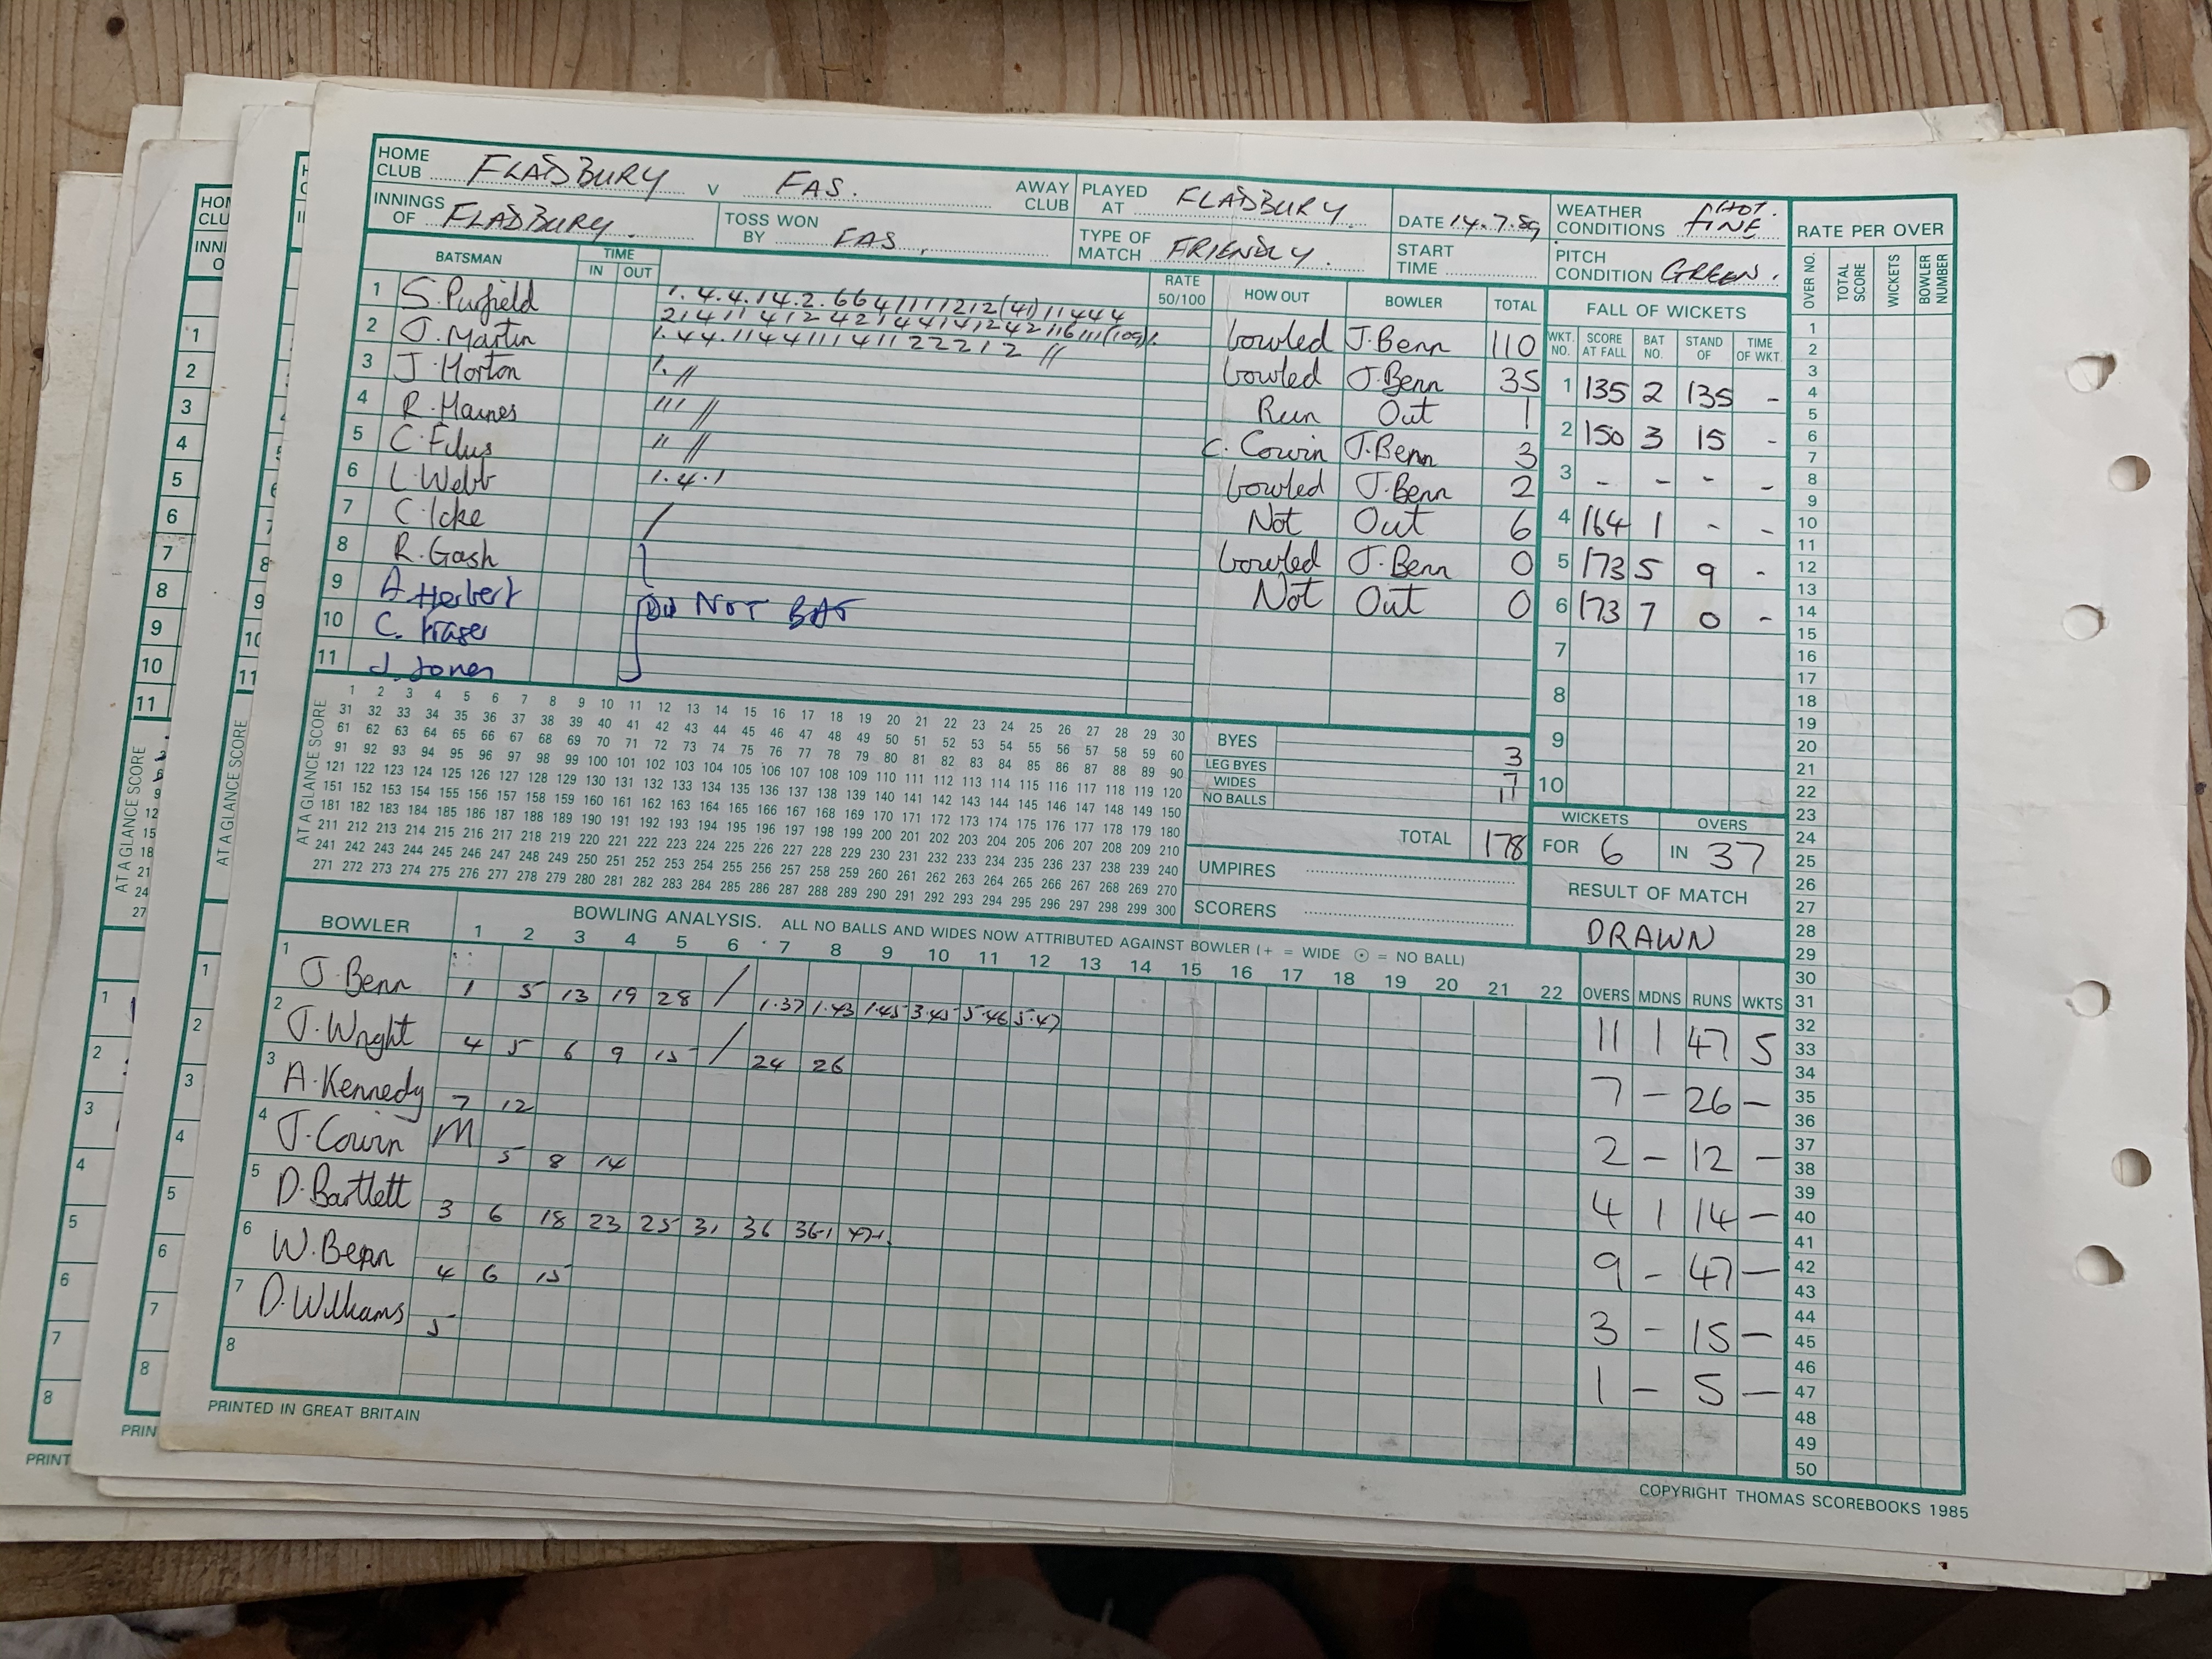 HOME CLUB FLADBURY V FAS. AWAY CLUB PLAYED AT FLADBURY. DATE 14.7.89 WEATHER CONDITIONS HOT. FINE
INNINGS OF FLADBURY. TOSS WON BY FAS. TYPE OF MATCH FRIENDLY. START TIME PITCH CONDITION GREEN.
RATE PER OVER
OVER NO. TOTAL SCORE WICKETS BOWLER NUMBER
BATSMAN TIME IN OUT RATE 50/100 HOW OUT BOWLER TOTAL
1 S. Purfield bowled J. Benn 110
2 J. Martin 1.44.114411141122212 // bowled J. Benn 35
3 J. Horton 1. // Run Out 1
4 R. Haines ''' // C. Corvin J. Benn 3
5 C. '' // bowled J. Benn 2
6 L. Webb 1.4.1 Not Out 6
7 C. Icke / bowled J. Benn 0
8 R. Gash Not Out 0
9 A. Herbert
10 C. Fraser DID NOT BAT
11 J. Jones
FALL OF WICKETS
WKT. NO. SCORE AT FALL BAT NO. STAND OF TIME OF WKT.
1 135 2 135 -
2 150 3 15 -
3 - - - -
4 164 1 - -
5 173 5 9 -
6 173 7 0 -
7
8
9
10
AT A GLANCE SCORE
1 2 3 4 5 6 7 8 9 10 11 12 13 14 15 16 17 18 19 20 21 22 23 24 25 26 27 28 29 30
31 32 33 34 35 36 37 38 39 40 41 42 43 44 45 46 47 48 49 50 51 52 53 54 55 56 57 58 59 60
61 62 63 64 65 66 67 68 69 70 71 72 73 74 75 76 77 78 79 80 81 82 83 84 85 86 87 88 89 90
91 92 93 94 95 96 97 98 99 100 101 102 103 104 105 106 107 108 109 110 111 112 113 114 115 116 117 118 119 120
121 122 123 124 125 126 127 128 129 130 131 132 133 134 135 136 137 138 139 140 141 142 143 144 145 146 147 148 149 150
151 152 153 154 155 156 157 158 159 160 161 162 163 164 165 166 167 168 169 170 171 172 173 174 175 176 177 178 179 180
181 182 183 184 185 186 187 188 189 190 191 192 193 194 195 196 197 198 199 200 201 202 203 204 205 206 207 208 209 210
211 212 213 214 215 216 217 218 219 220 221 222 223 224 225 226 227 228 229 230 231 232 233 234 235 236 237 238 239 240
241 242 243 244 245 246 247 248 249 250 251 252 253 254 255 256 257 258 259 260 261 262 263 264 265 266 267 268 269 270
271 272 273 274 275 276 277 278 279 280 281 282 283 284 285 286 287 288 289 290 291 292 293 294 295 296 297 298 299 300
BYES 3
LEG BYES
WIDES 7
NO BALLS
TOTAL 178
UMPIRES
SCORERS
WICKETS OVERS
FOR 6 IN 37
RESULT OF MATCH
DRAWN
BOWLER BOWLING ANALYSIS. ALL NO BALLS AND WIDES NOW ATTRIBUTED AGAINST BOWLER (+ = WIDE ⊙ = NO BALL)
1 2 3 4 5 6 7 8 9 10 11 12 13 14 15 16 17 18 19 20 21 22 OVERS MDNS RUNS WKTS
1 J. Benn 1 5 13 19 28 / 1.37 1.43 1.45 3.45 5.46 5.47 11 1 47 5
2 J. Wright 4 5 6 9 15 / 24 26 7 - 26 -
3 A. Kennedy 7 12 2 - 12 -
4 J. Corvin M 5 8 14 4 1 14 -
5 D. Bartlett 3 6 18 23 25 31 36 9 - 47 -
6 W. Benn 4 6 15 3 - 15 -
7 D. Williams 5 1 - 5 -
8
1 2 3 4 5 6 7 8 9 10 11 12 13 14 15 16 17 18 19 20 21 22 23 24 25 26 27 28 29 30 31 32 33 34 35 36 37 38 39 40 41 42 43 44 45 46 47 48 49 50
PRINTED IN GREAT BRITAIN
COPYRIGHT THOMAS SCOREBOOKS 1985